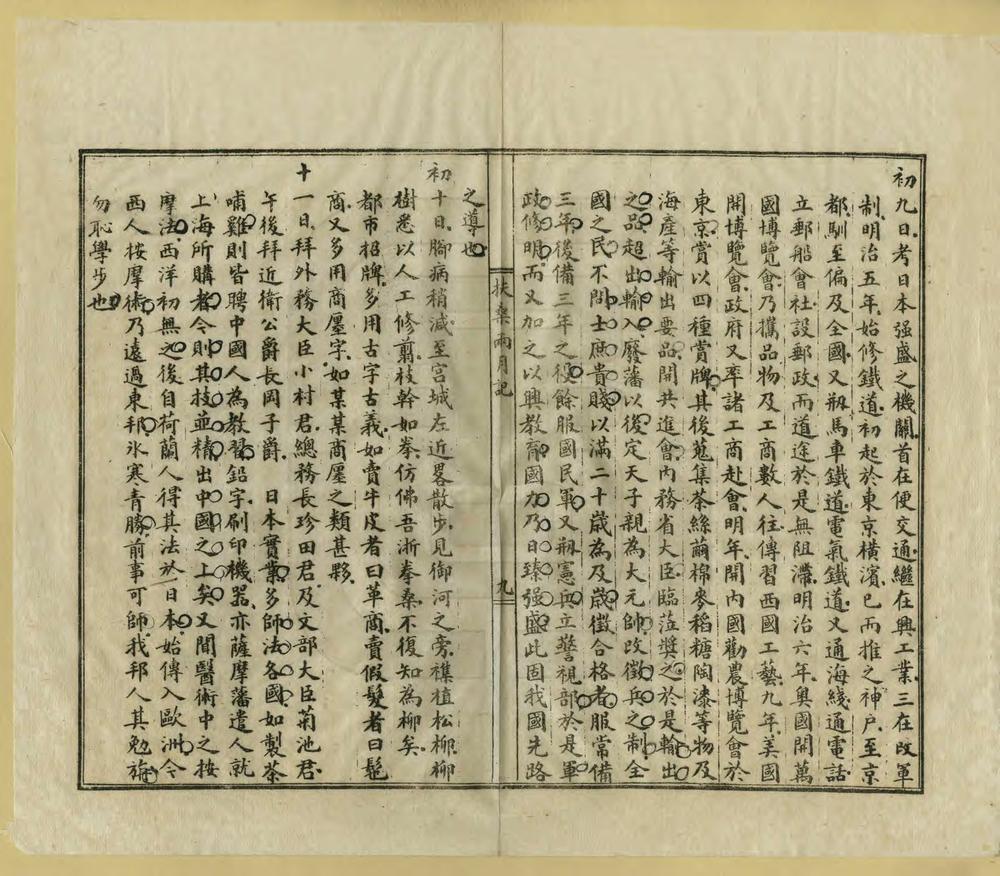 初九日考日本强盛之機關首在便交通繼在興工業三在改軍
制明治五年始修鐵道初起於東京橫濱已而推之神戶至京
都馴至偏及全國又剏馬車鐵道電氣鐵道又通海綫通電話
立郵船會社設郵政而道途於是無阻滯明治六年奧國開萬
國博覽會乃攜品物及工商數人往傳習西國工藝九年美國
開博覽會政府又率諸工商赴會明年開內國勸農博覽會於
東京賞以四種賞牌其後蒐集茶絲繭棉麥稻糖陶漆等物及
海產等輸出要品開共進會內務省大臣臨莅獎之於是輸出
之品超出輸入廢藩以後定天子親為大元帥改徵兵之制全
國之民不問士庶貴賤以滿二十歲為及歲徵合格者服常備
三年後備三年之役餘服國民軍又剏憲兵立警視部於是軍
政修明而又加之以興教育國力乃日臻强盛此固我國先路
扶桑兩月記
九
之導也
初十日腳病稍減至宮城左近畧散步見御河之旁襍植松柳柳
樹悉以人工修翦枝幹如拳仿佛吾浙拳桑不復知為柳矣
都市招牌多用古字古義如賣牛皮者曰革商賣假髮者曰髢
商又多用商廛字如某某商廛之類甚夥
十一日拜外務大臣小村君總務長珍田君及文部大臣菊池君
午後拜近衛公爵長岡子爵　日本實業多師法各國如製茶
哺雞則皆聘中國人為教習鉛字刷印機器亦薩摩藩遣人就
上海所購者今則其技並精出中國之上矣又聞醫術中之按
摩法西洋初無之後自荷蘭人得其法於日本始傳入歐洲今
西人按摩術乃遠過東邦氷寒青勝前事可師我邦人其勉旃
勿恥學步也